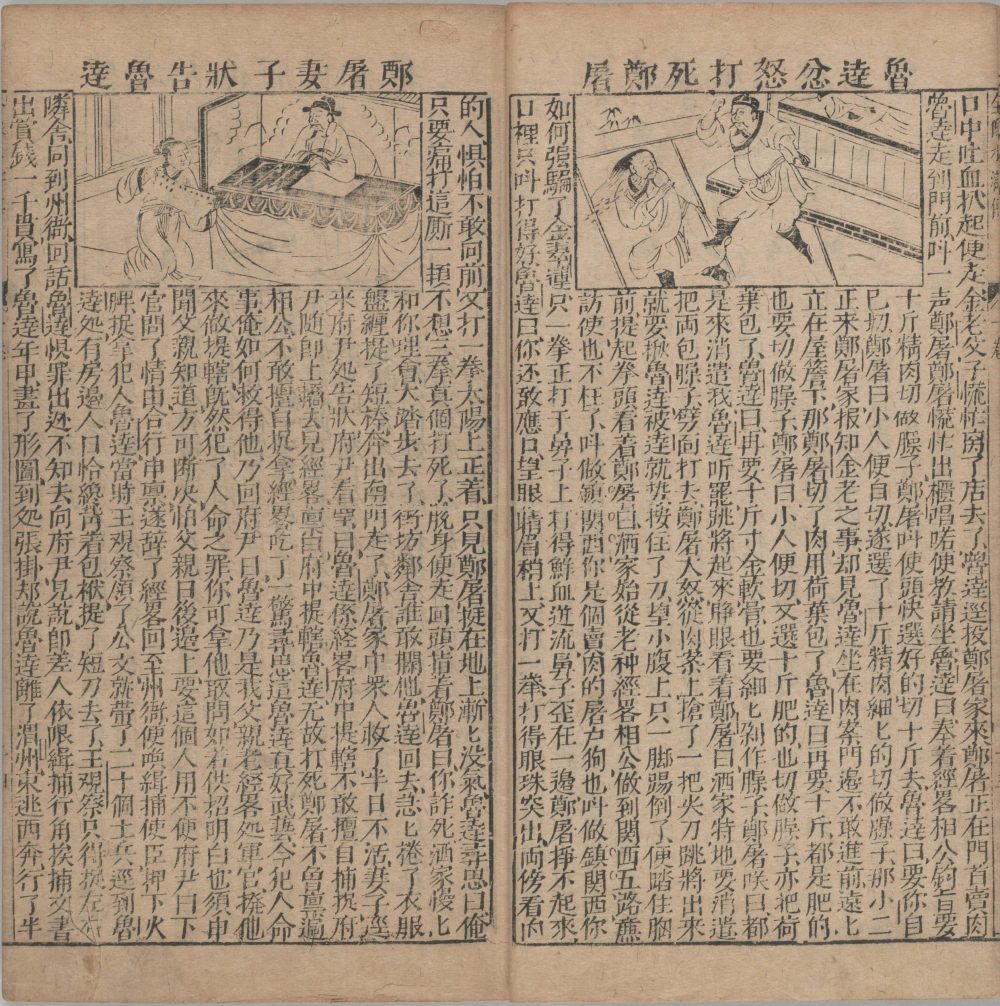 魯達忿怒打死鄭屠
口中吐血扒起便走金老父子慌忙房了店去了魯達逕投鄭屠家來鄭屠正在門首賣肉
魯達走到門前叫一声鄭屠鄭屠慌忙出櫃唱喏便教請坐魯達曰奉着經畧相公鈞旨要
十斤精肉切做臊子鄭屠叫使頭快選好的切十斤去魯達曰要你自
巳切鄭屠曰小人便自切遂選了十斤精肉細匕的切做臊子那小二
正來鄭屠家报知金老之事却見魯達坐在肉案門邊不敢進前遠匕
立在屋簷下那鄭屠切了肉用荷葉包了魯達曰再要十斤都是肥的
也要切做臊子鄭屠曰小人便切又選十斤肥的也切做臊子亦把荷
葉包了魯達曰再要十斤寸金軟骨也要細匕剁作臊子鄭屠咲曰都
是來消遣我魯達听罷跳將起來睁眼看着鄭屠曰洒家特地要消遣
把両包臊子劈面打去鄭屠大怒從肉案上搶了一把尖刀跳將出來
就要揪魯達被達就势按住了刀望小腹上只一脚踢倒了便踏住胸
前提起拳頭看着鄭屠曰洒家始從老种經畧相公做到関西五路廉
訪使也不枉了叫做鎮関西你是個賣肉的屠户狗也叫做鎮関西你
如何强騙了金翠蓮只一拳正打于鼻子上打得鮮血迸流鼻子歪在一邊鄭屠掙不起來
口裡只叫打得好魯達曰你还敢應只望眼睛眉稍上又打一拳打得眼珠突出両傍看的
鄭屠妻子狀告魯達
的人惧怕不敢向前又打一拳太陽上正着只見鄭屠挺在地上漸匕没氣魯達尋思曰俺
只要痛打這厮一頓不想三拳真個打死了脱身便走回頭指着鄭屠曰你詐死洒家慢匕
和你理會大踏步去了街坊鄰舍誰敢攔他魯達回去急匕捲了衣服
盤纏提了短棒奔出南門走了鄭屠家中衆人救了半日不活妻子逕
來府尹処告狀府尹看罷曰魯達係經畧府中提轄不敢擅自捕捉府
尹随即上轎去見經畧禀曰府中提轄魯達无故打死鄭屠不曾禀過
相公不敢擅自捉拿經畧吃了一驚尋思這魯達真好武藝今犯人命
事俺如何救得他乃回府尹曰魯達乃是我父親老經畧処軍官撥他
來做提轄既然犯了人命之罪你可拿他取問如若供招明白也須申
聞父親知道方可断决怕父親日後邉上要這個人用不便府尹曰下
官問了情由合行申禀遂辞了經畧回至州衙便喚緝捕使臣押下火
牌捉拿犯人魯達當時王观察領了公文就帶了二十個土兵逕到魯
達処有房邊人曰恰纔背着包袱提了短刀去了王观察只得捉左右
隣舍同到州衙回話魯達惧罪出迯不知去向府尹見說即差人依限緝捕行角挨捕文書
出賞錢一千貫寫了魯達年甲畫了形圖到処張掛却說魯達離了渭州東逃西奔行了半